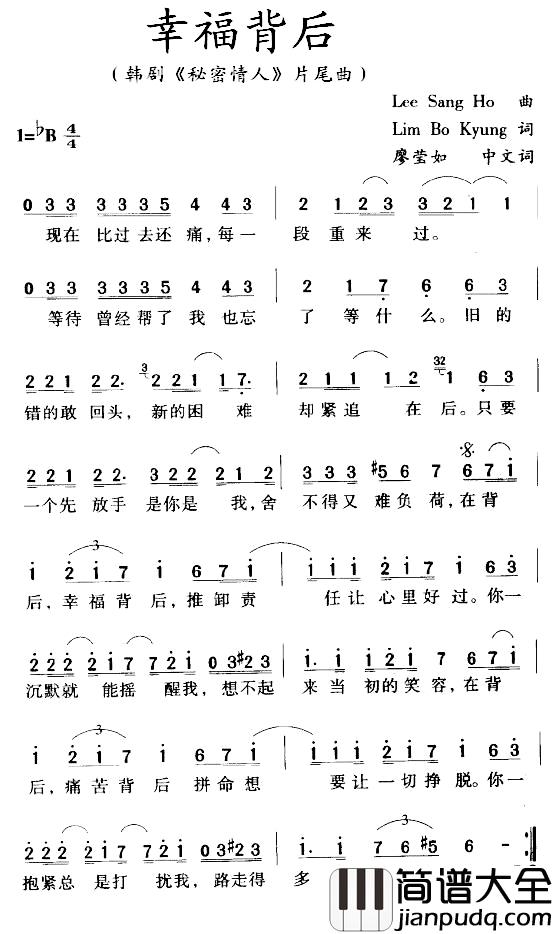 幸福背后
(韩剧《秘密情人》片尾曲)
Lee Sang Ho 曲
1=♭B 4/4
Lim Bo Kyung 词
廖莹如 中文词
0 3 3 3 3 3 5 4 4 3 | 2 1 2 3 3 2 1 1
现在 比过去还痛,每一 段重来 过。
0 3 3 3 3 3 5 4 4 3 | 2 1 7 6 6 3
等待 曾经帮了我也忘 了等什么。旧的
2 2 1 2 2. 3 2 2 1 1 7. | 2 1 1 1 2 32 1 6 3
错的敢 回头,新的困 难 却紧追 在后。只要
2 2 1 2 2. 3 2 2 2 1 2 | 3 3 3 #5 6 7 6 7 1
一个先 放手 是你是 我,舍 不得又 难负荷,在背
3
1 2 1 7 1 6 7 1 | 1 1 1 2 1 7 1 6 3
后,幸福背 后,推卸责 任让 心里好过。你一
2 2 2 2 1 7 7 2 1 0 3 #2 3 | 1. 1 1 2 1 7 6 7 1
沉默就 能摇 醒我,想不起 来当 初的笑容,在背
3
1 2 1 7 1 6 7 1 | 1 1 1 2 1 7 1 6 3
后,痛苦背 后 拼命想 要让一切挣脱。你一
2 2 2 2 1 7 7 2 1 0 3 #2 3 | 1 7 6 #5 6 - :
3
抱紧总 是打 扰我,路走得 多
简谱大全
jianpudq.com